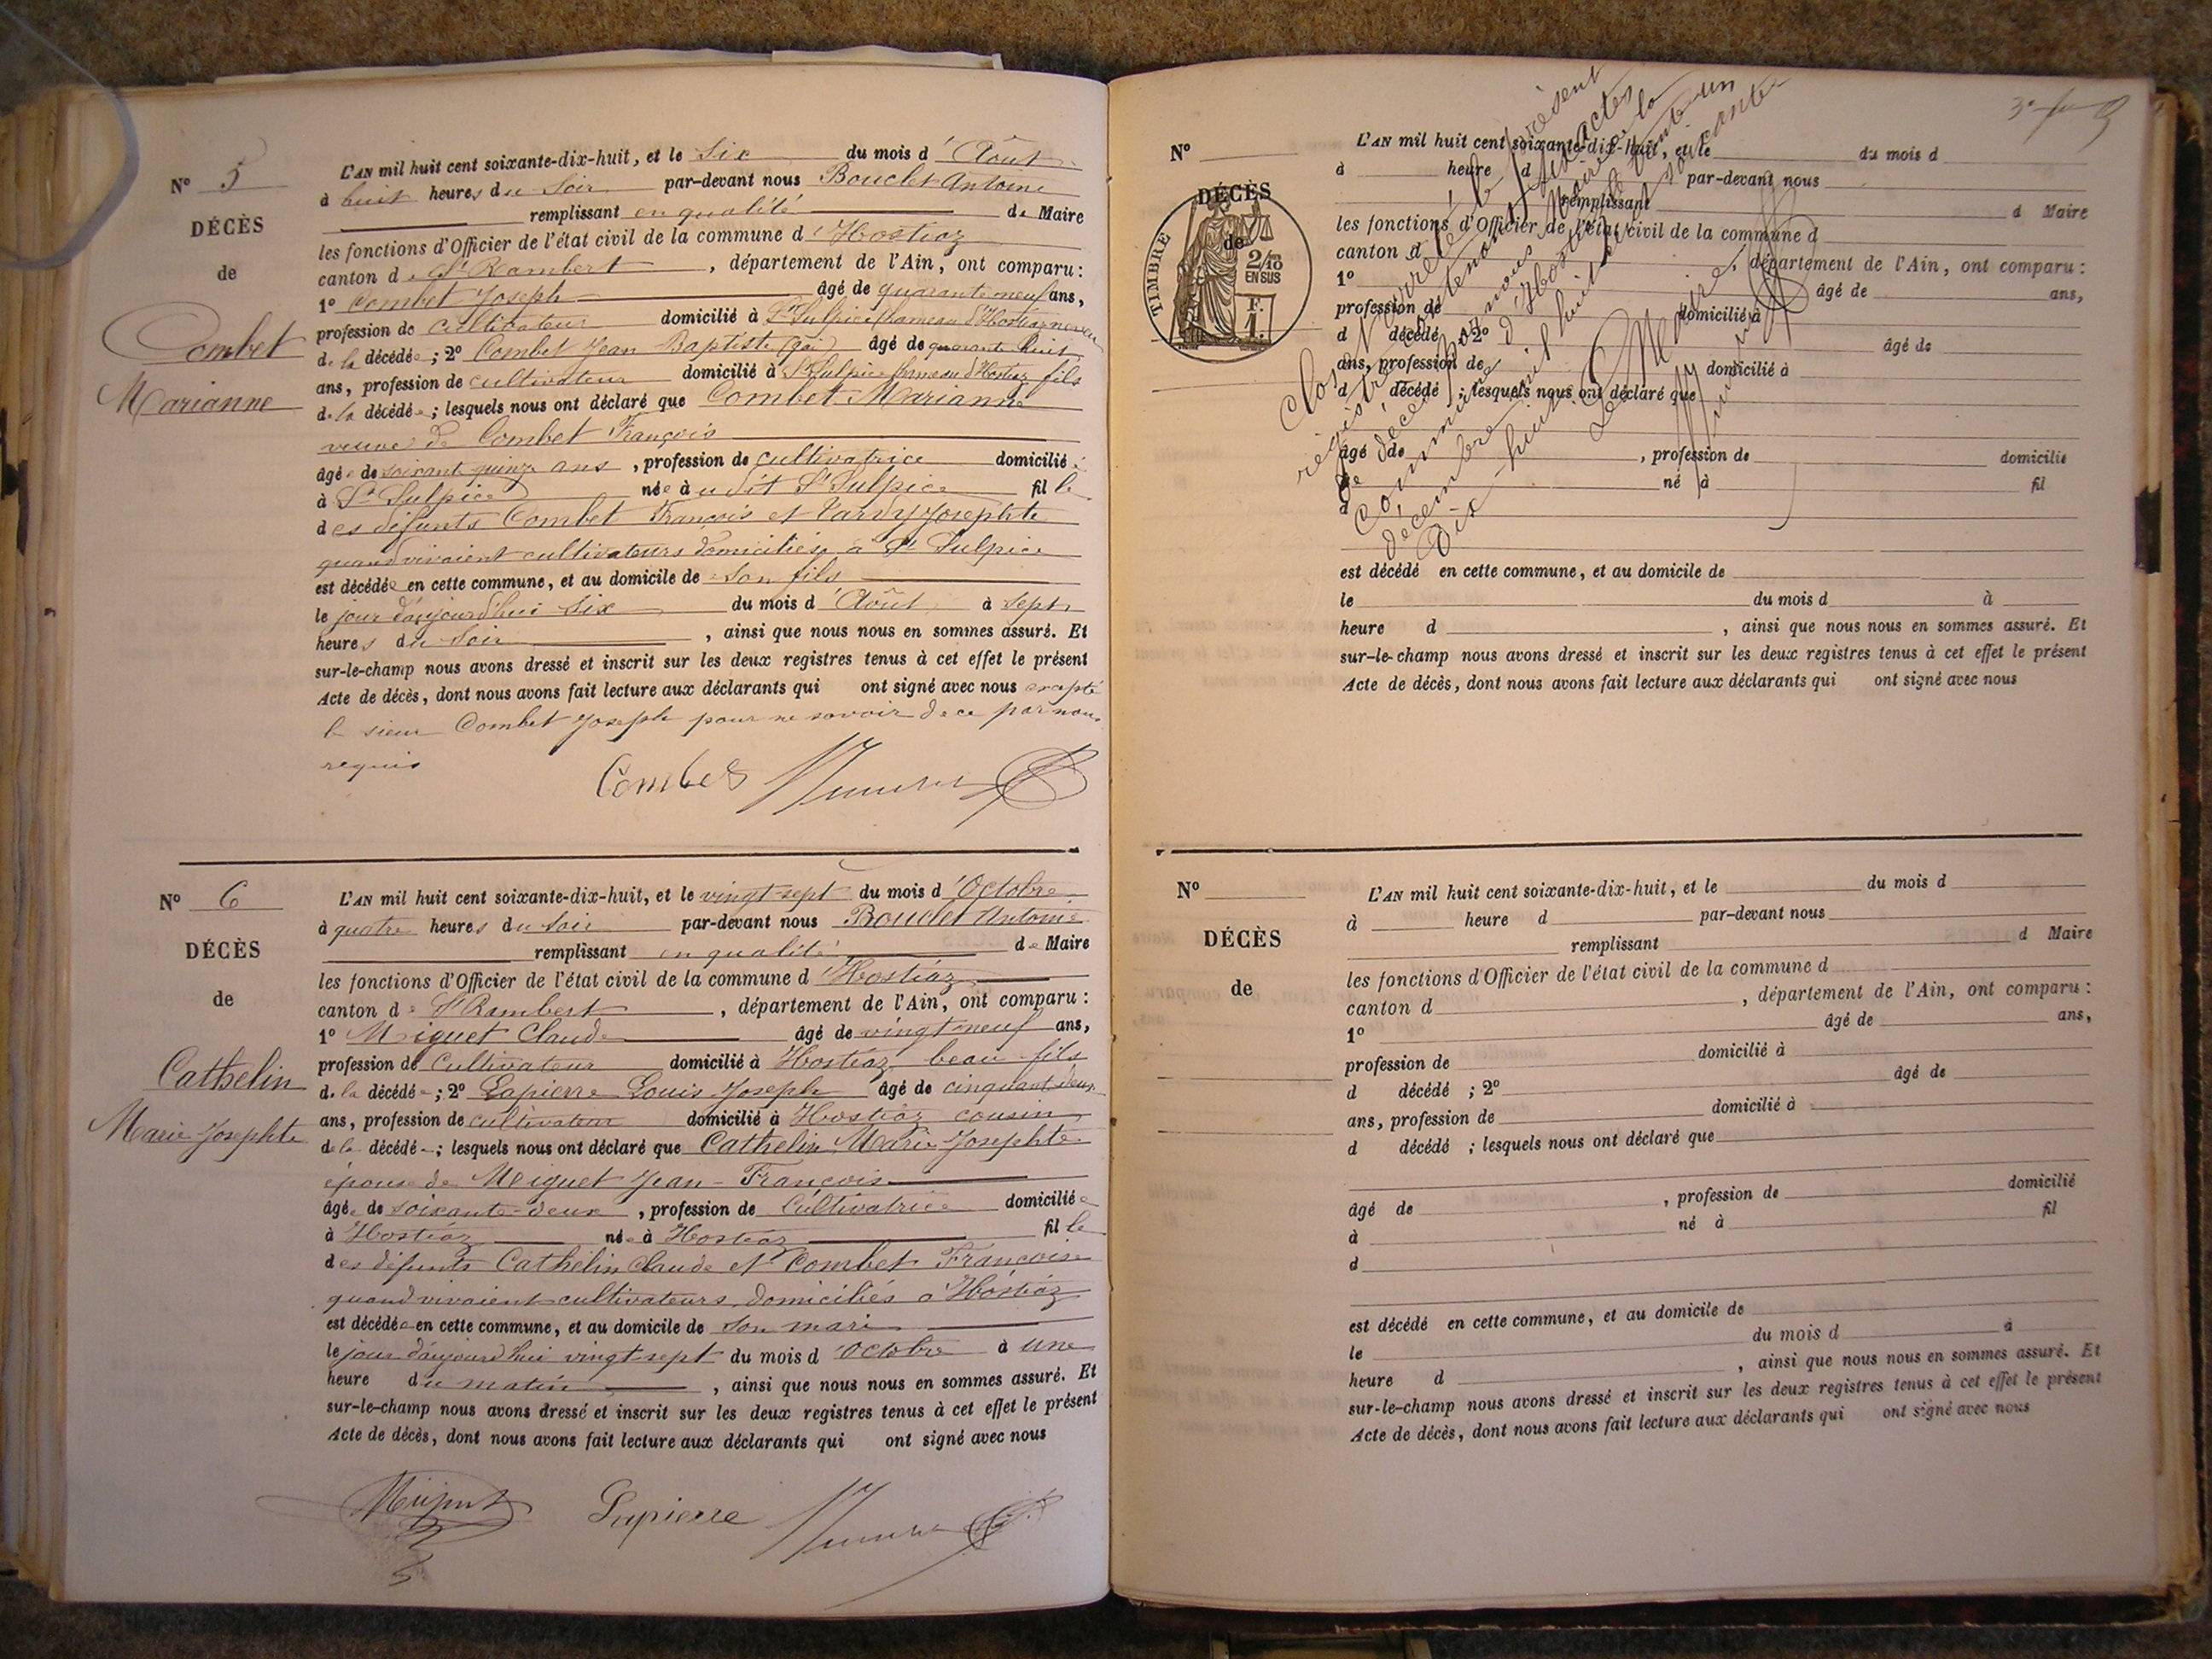 N° 5
DÉCÈS
de
Combet
Marianne
L'AN mil huit cent soixante-dix-huit, et le Six du mois d'Août
à huit heures du Soir par-devant nous Bouclet Antoine
remplissant en qualité de Maire
les fonctions d'Officier de l'état civil de la commune d'Hostiaz
canton de St Rambert, département de l'Ain, ont comparu :
1° Combet Joseph âgé de quarante neuf ans,
profession de cultivateur domicilié à St Sulpice hameau d'Hostiaz neveu
de la décédée ; 2° Combet Jean Baptiste âgé de quarante huit
ans, profession de cultivateur domicilié à St Sulpice hameau d'Hostiaz fils
de la décédée ; lesquels nous ont déclaré que Combet Marianne
veuve de Combet François
âgée de soixant quinze ans, profession de cultivatrice domicilié
à St Sulpice née à u dit St Sulpice fille
des défunts Combet François et Josephte
quand vivaient cultivateurs domiciliés à St Sulpice
est décédée en cette commune, et au domicile de Son fils
le jour d'aujourd'hui Six du mois d'Août à Sept
heures du Soir, ainsi que nous nous en sommes assuré. Et
sur-le-champ nous avons dressé et inscrit sur les deux registres tenus à cet effet le présent
Acte de décès, dont nous avons fait lecture aux déclarants qui ont signé avec nous excepté
le sieur Combet Joseph pour ne savoir de ce par nous
requis
Combet
N° 6
DÉCÈS
de
Cathelin
Marie Josephte
L'AN mil huit cent soixante-dix-huit, et le vingt-sept du mois d'Octobre
à quatre heures du Soir par-devant nous Bouclet Antoine
remplissant en qualité de Maire
les fonctions d'Officier de l'état civil de la commune d'Hostiaz
canton de St Rambert, département de l'Ain, ont comparu :
1° Miguet Claude âgé de vingt neuf ans,
profession de Cultivateur domicilié à Hostiaz beau-fils
de la décédée ; 2° Lapierre Louis Joseph âgé de cinquant deux
ans, profession de cultivateur domicilié à Hostiaz cousin
de la décédée ; lesquels nous ont déclaré que Cathelin Marie Josephte
épouse de Miguet Jean-François
âgée de soixante-deux, profession de Cultivatrice domiciliée
à Hostiaz née à Hostiaz fille
des défunts Cathelin Claude et Combet Françoise
quand vivaient cultivateurs domiciliés à Hostiaz
est décédée en cette commune, et au domicile de Son mari
le jour d'aujourd'hui vingt-sept du mois d'Octobre à une
heure du matin, ainsi que nous nous en sommes assuré. Et
sur-le-champ nous avons dressé et inscrit sur les deux registres tenus à cet effet le présent
Acte de décès, dont nous avons fait lecture aux déclarants qui ont signé avec nous
Miguet Lapierre
N°
DÉCÈS
de
TIMBRE
2/10 EN SUS
F.
1.
L'AN mil huit cent soixante-dix-huit, et le du mois d
à heure d par-devant nous
remplissant d Maire
les fonctions d'Officier de l'état civil de la commune d
canton d, département de l'Ain, ont comparu :
1° âgé de ans,
profession de domicilié à
d décédé ; 2° âgé de
ans, profession de domicilié à
d décédé ; lesquels nous ont déclaré que
âgé de, profession de domicilié
à né à fil
d
est décédé en cette commune, et au domicile de
le du mois d à
heure d, ainsi que nous nous en sommes assuré. Et
sur-le-champ nous avons dressé et inscrit sur les deux registres tenus à cet effet le présent
Acte de décès, dont nous avons fait lecture aux déclarants qui ont signé avec nous
Clos et arrêté le présent
registre contenant Six actes
de décès par nous Maire de la
Commune d'Hostiaz le trente-un
décembre mil huit cent soixante
Dix-huit. Le Maire
N°
DÉCÈS
de
L'AN mil huit cent soixante-dix-huit, et le du mois d
à heure d par-devant nous
remplissant d Maire
les fonctions d'Officier de l'état civil de la commune d
canton d, département de l'Ain, ont comparu :
1° âgé de ans,
profession de domicilié à
d décédé ; 2° âgé de
ans, profession de domicilié à
d décédé ; lesquels nous ont déclaré que
âgé de, profession de domicilié
à né à fil
d
est décédé en cette commune, et au domicile de
le du mois d à
heure d, ainsi que nous nous en sommes assuré. Et
sur-le-champ nous avons dressé et inscrit sur les deux registres tenus à cet effet le présent
Acte de décès, dont nous avons fait lecture aux déclarants qui ont signé avec nous